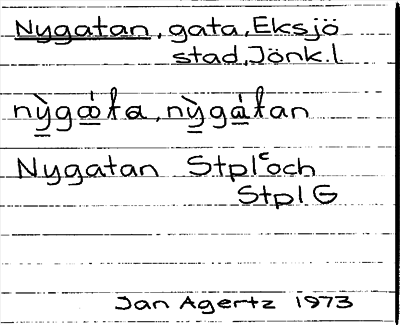 Nygatan, gata, Eksjö
stad, Jönk. l.
nỳ̲gá̲ta, nỳ̲gá̲tan
Nygatan Stpl E och
Stpl G
Jan Agertz 1973